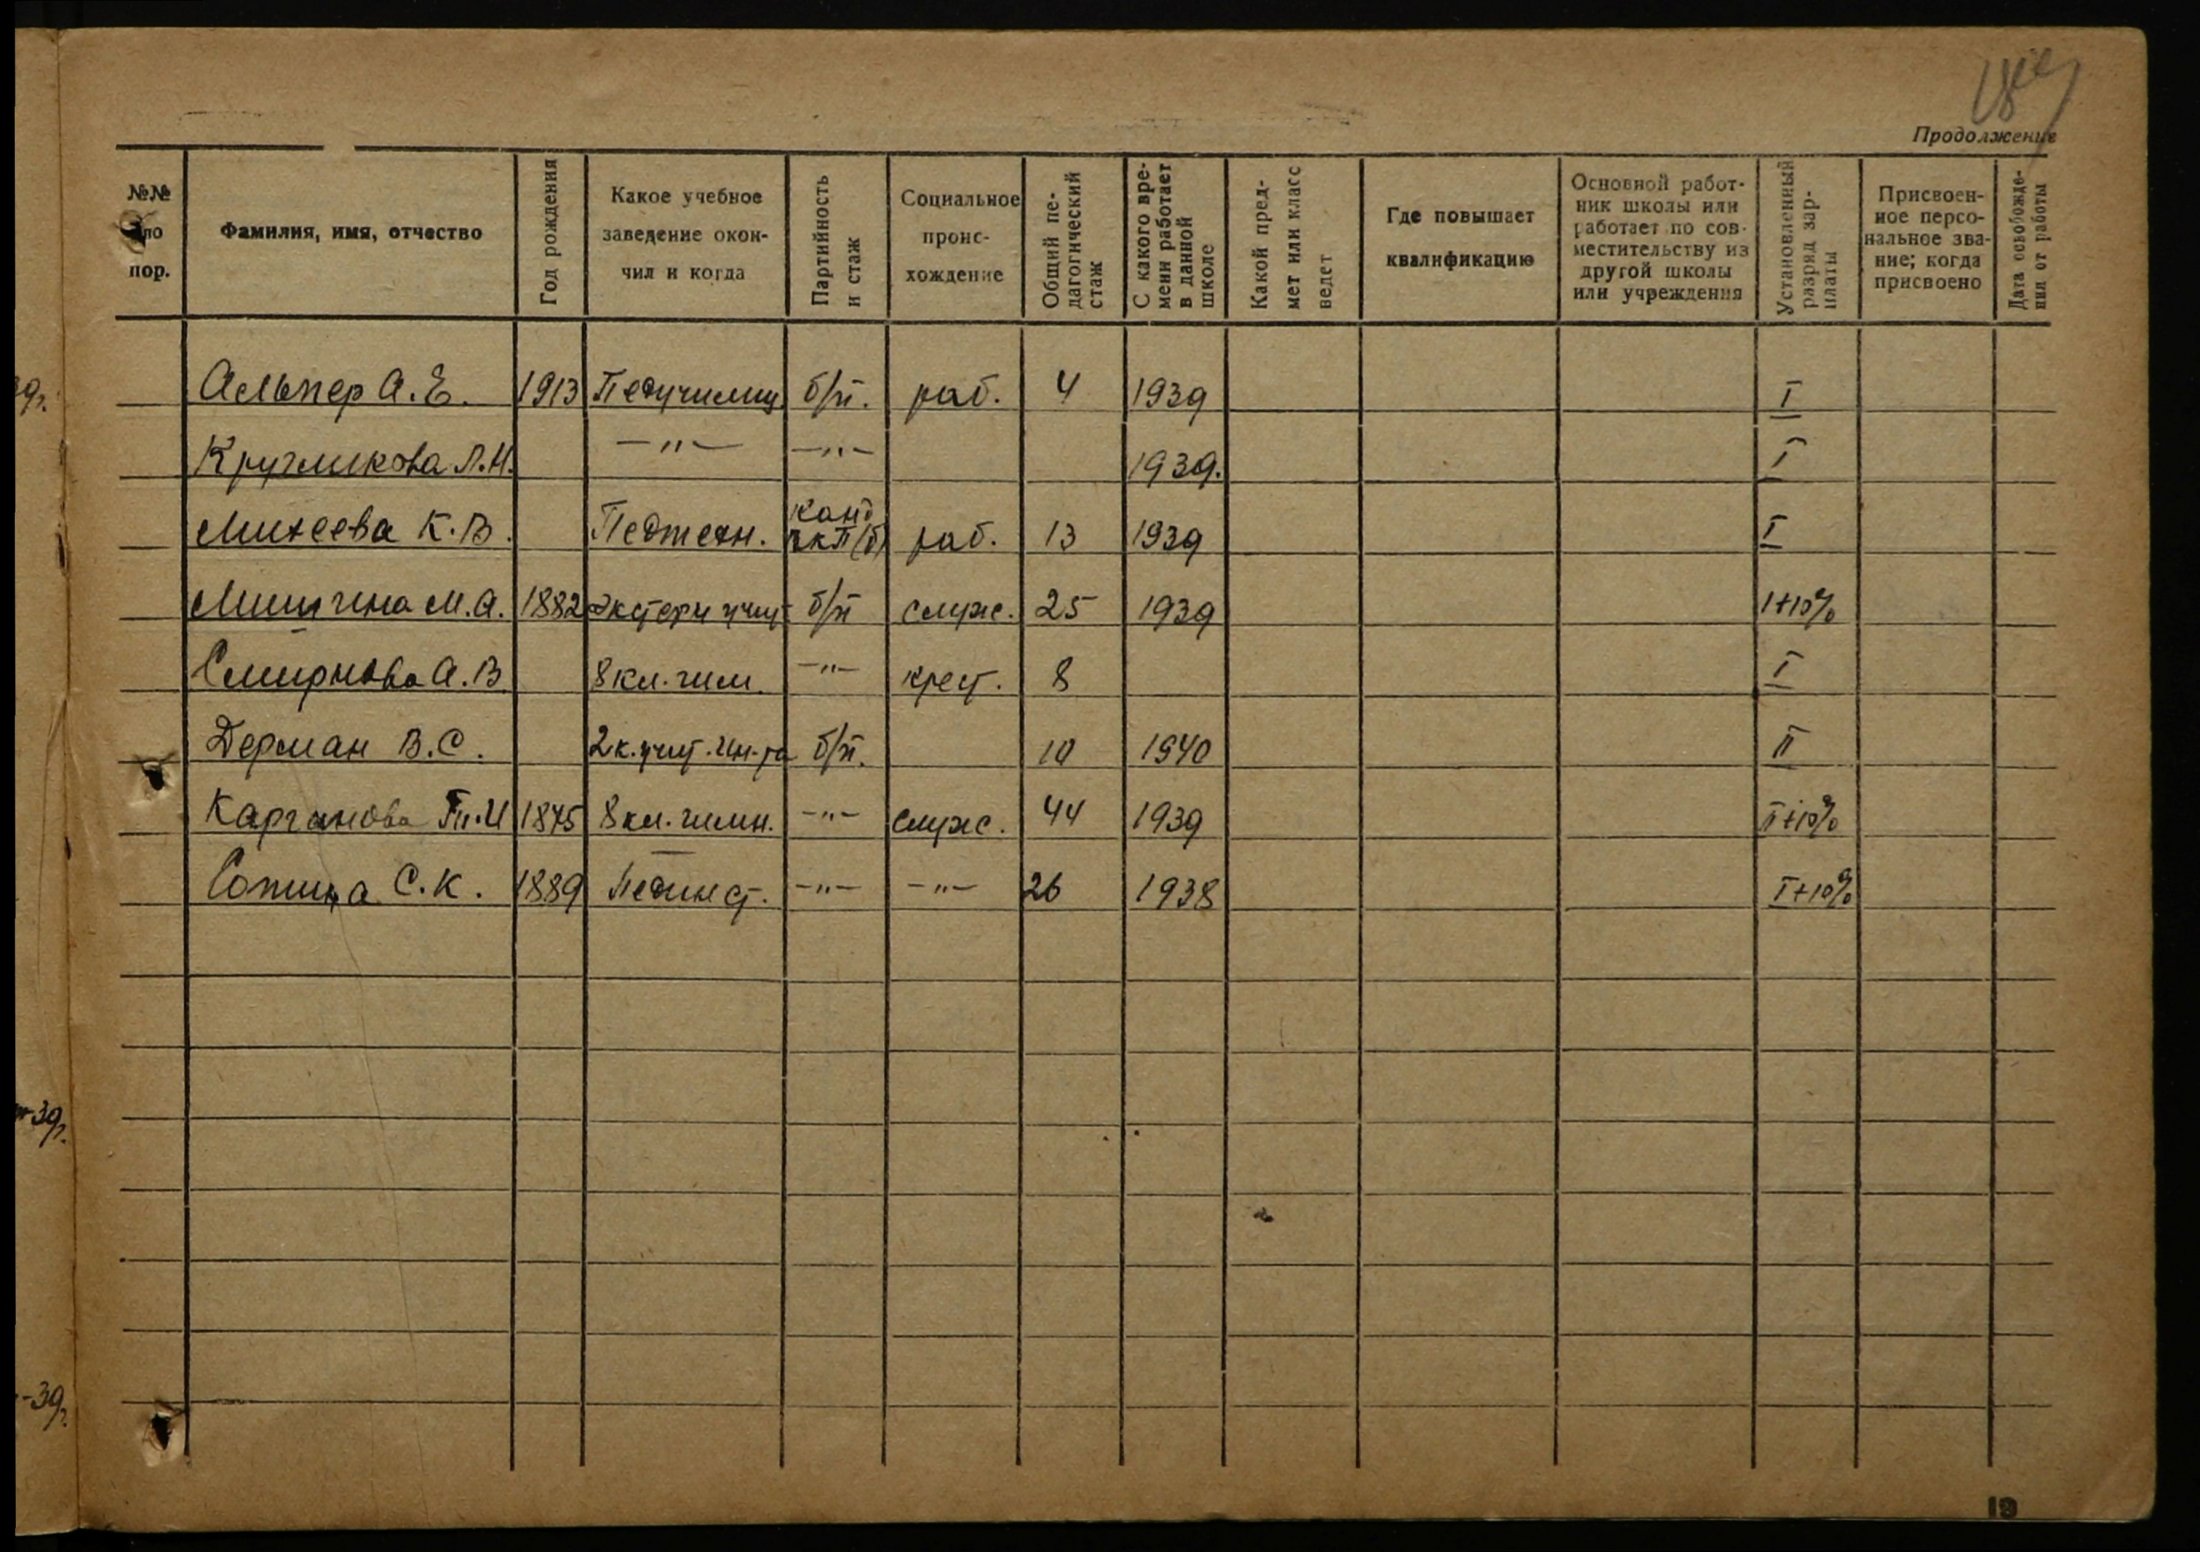 Продолжение
№№ по пор.
Фамилия, имя, отчество
Год рождения
Какое учебное заведение окон-чил и когда
Партийность и стаж
Социальное проис-хождение
Общий пе-дагогический стаж
С какого вре-мени работает в данной школе
Какой пред-мет или класс ведет
Где повышает квалификацию
Основной работ-ник школы или работает по сов-местительству из другой школы или учреждения
Установленный разряд зар-платы
Присвоен-ное персо-нальное зва-ние; когда присвоено
Дата освобожде-ния от работы
Альпер А. Е. 1913 Педучилищ. б/п. раб. 4 1939 I
Кругликова Л.Н. —"— —"— 1939. I
Михеева К. В. Педтехн. канд ВКП(б) раб. 13 1939 I
Мишгина М. А. 1882 Экстерн учит б/п служ. 25 1939 I+10%
Смирнова А. В 8 кл. гим. —"— крест. 8 I
Дерман В. С. 2 к. учит. ин-та б/п. 10 1940 II
Карганова И 1875 8 кл. гимн. —"— служ. 44 1939 II+10%
С. К. 1889 Пединст. —"— —"— 26 1938 I+10%
39г.
39г.
-39г.
19